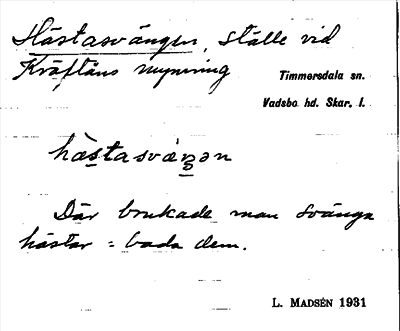 Hästasvängen, ställe vid
Kräftåns mynning
Timmersdala sn.
Vadsbo hd. Skar. l.
Där brukade man svänga
hästar = bada dem.
L. MADSÉN 1931